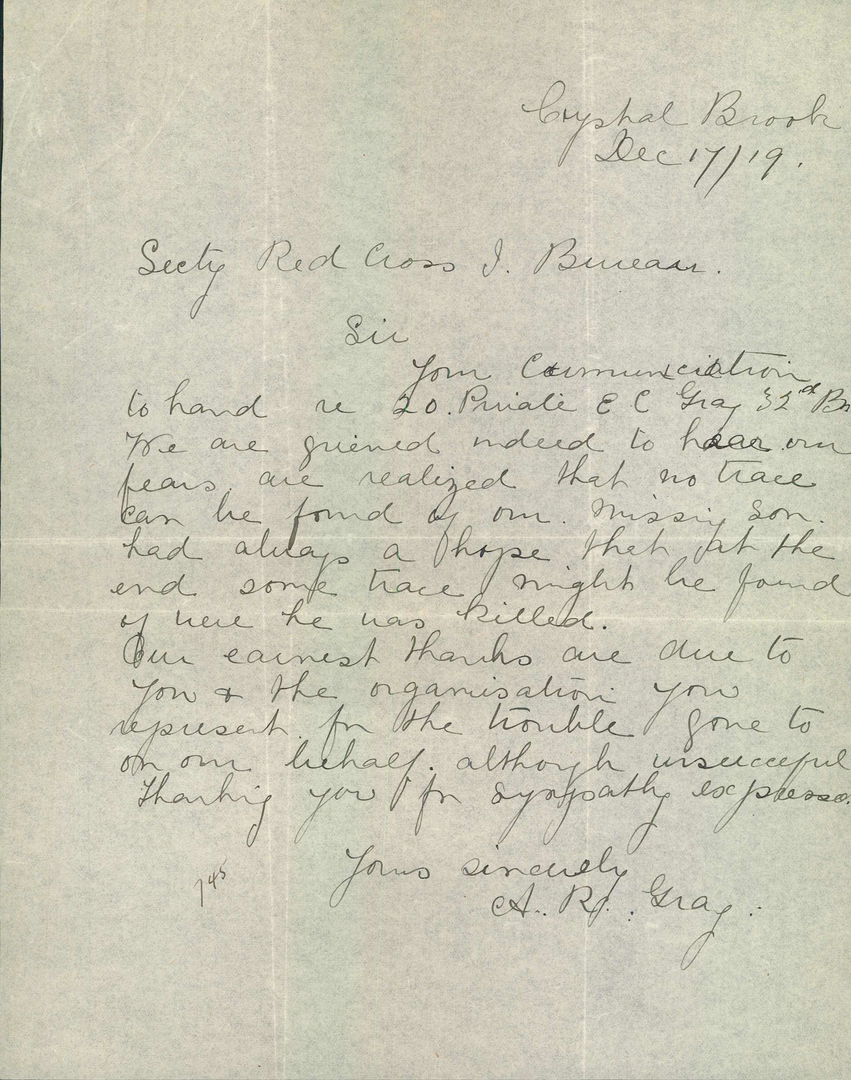 Crystal Brook
Dec 17/19.
Secty Red Cross I. Bureau.
Sir
Your Communication
to hand re 20. Private E C Gray 32nd Bn
We are grieved indeed to hear our
fears are realized that no trace
can be found of our missing son.
had always a hope that at the
end some trace might be found
of were he was killed.
Our earnest thanks are due to
you & the organisation you
represent for the trouble gone to
on our behalf. although unsuccesful
Thanking you for sympathy expressed.
Yours sincerely
A. R. Gray.
745